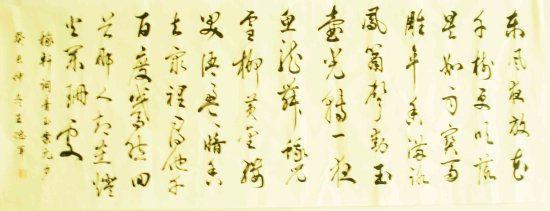 东风夜放花
千树更吹落
星如雨宝马
雕车香满路
凤箫声动玉
壶光转一夜
鱼龙舞蛾儿
雪柳黄金缕
笑语盈盈暗香
去众里寻他千
百度蓦然回
首那人却在灯
火阑珊处
稼轩词青玉案元夕
癸巳仲冬王